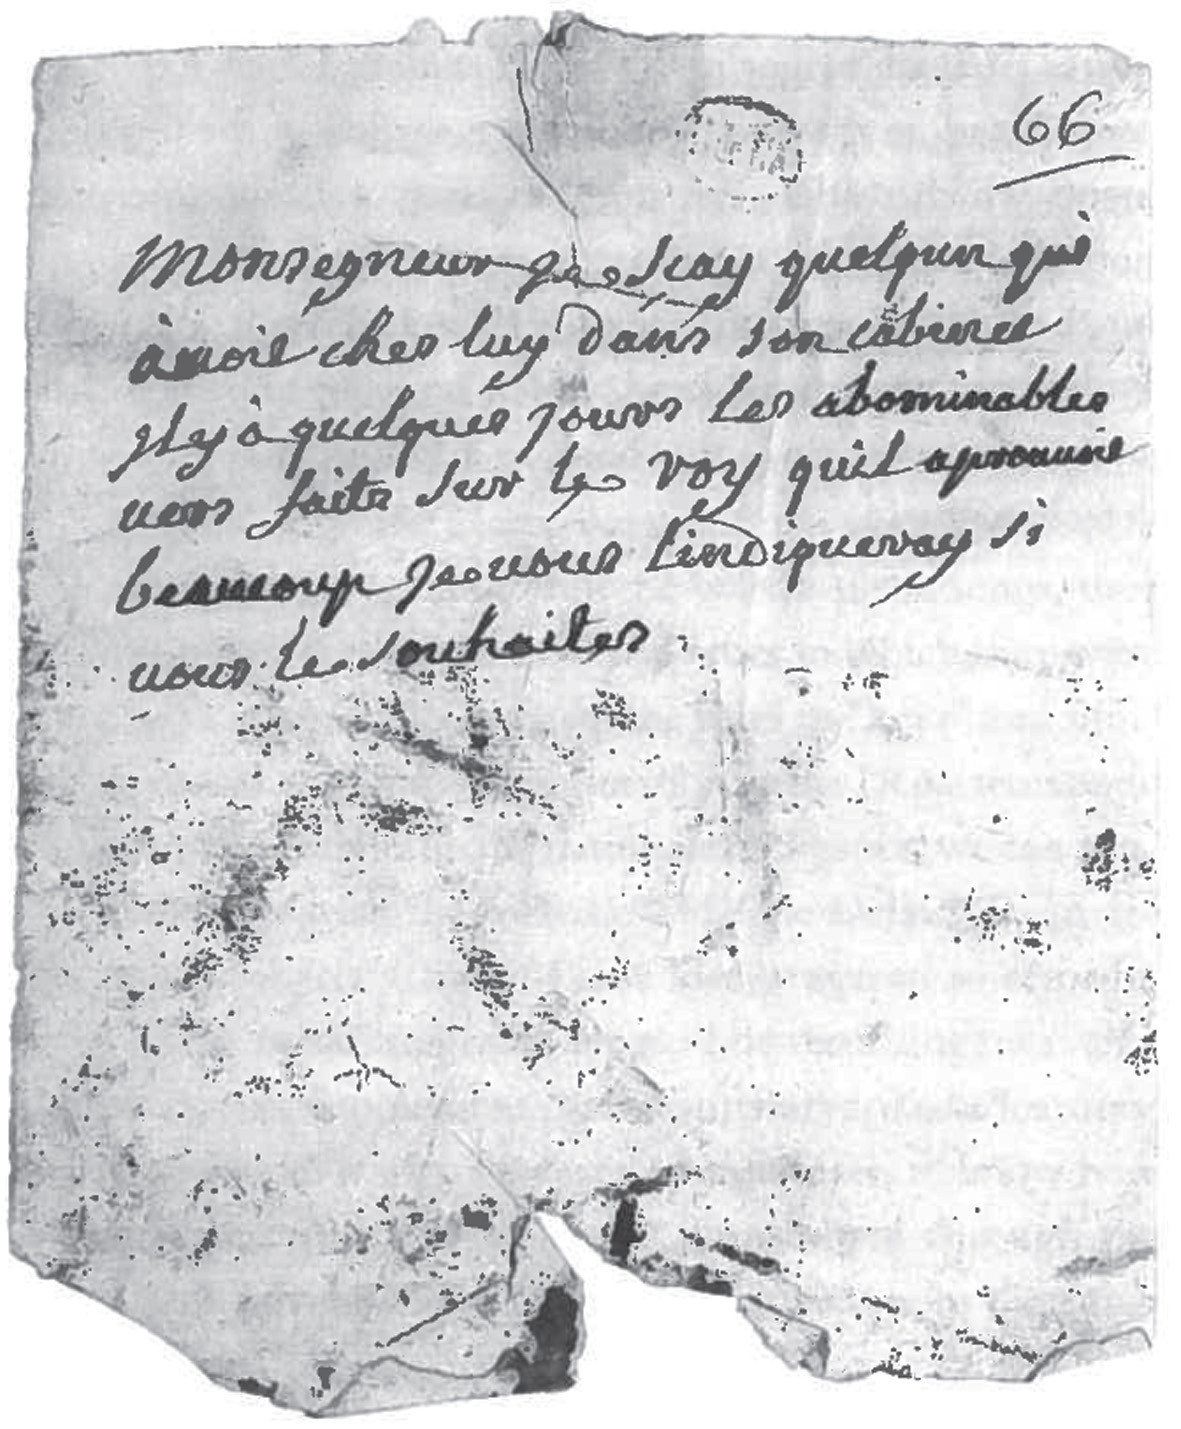 66
Monsegneur je scay quelqun qui
à avoit ches luy dans son cabinet
il y à quelques jours les abominables
vers faits sur le roy quil aprouvoit
beaucoup je vous lindiqueray si
vous le souhaites